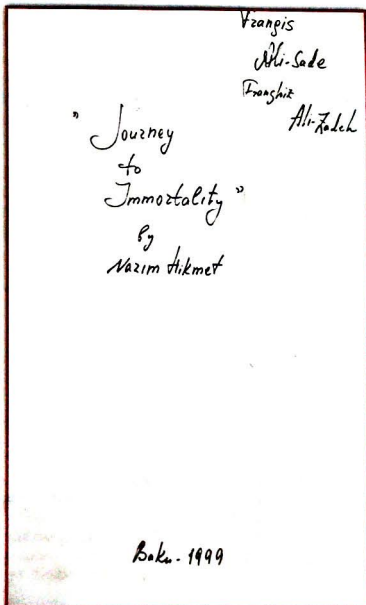 Frangis
Ali-Sade
Franghiz
Ali-Zadeh
"Journey
to
Immortality"
by
Nazım Hikmet
Baku - 1999